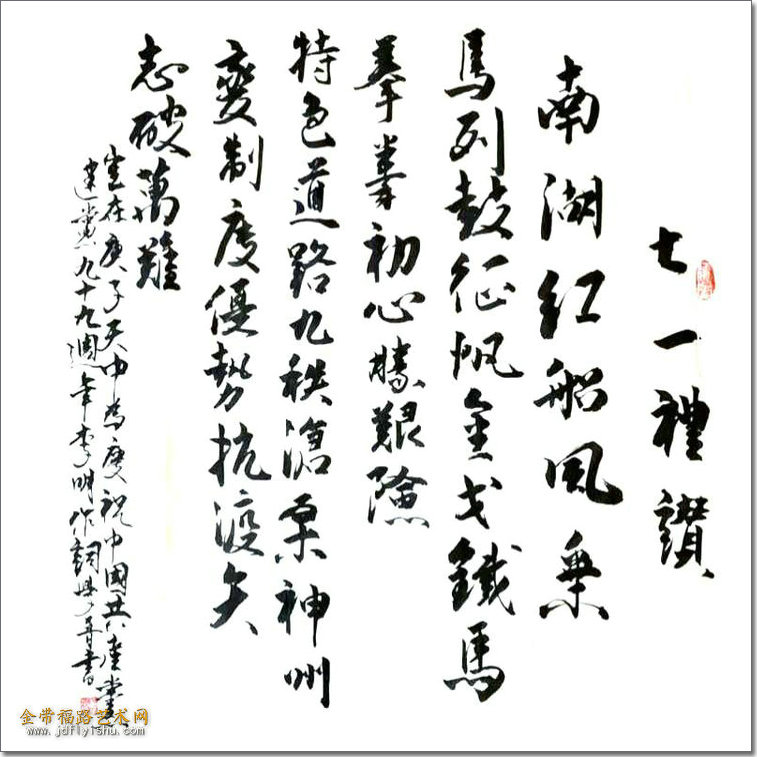 七一禮讃
南湖紅船風乗
馬列鼓征帆金戈鐵馬
拳拳初心勝艱險
特色道路九秩滄桒神州
變制度優勢抗疫矢
志破萬難
岁在庚子天中為慶祝中國共産黨
建黨九十九週年李明作詞
書
金带福路艺术网
www.jdflyishu.com